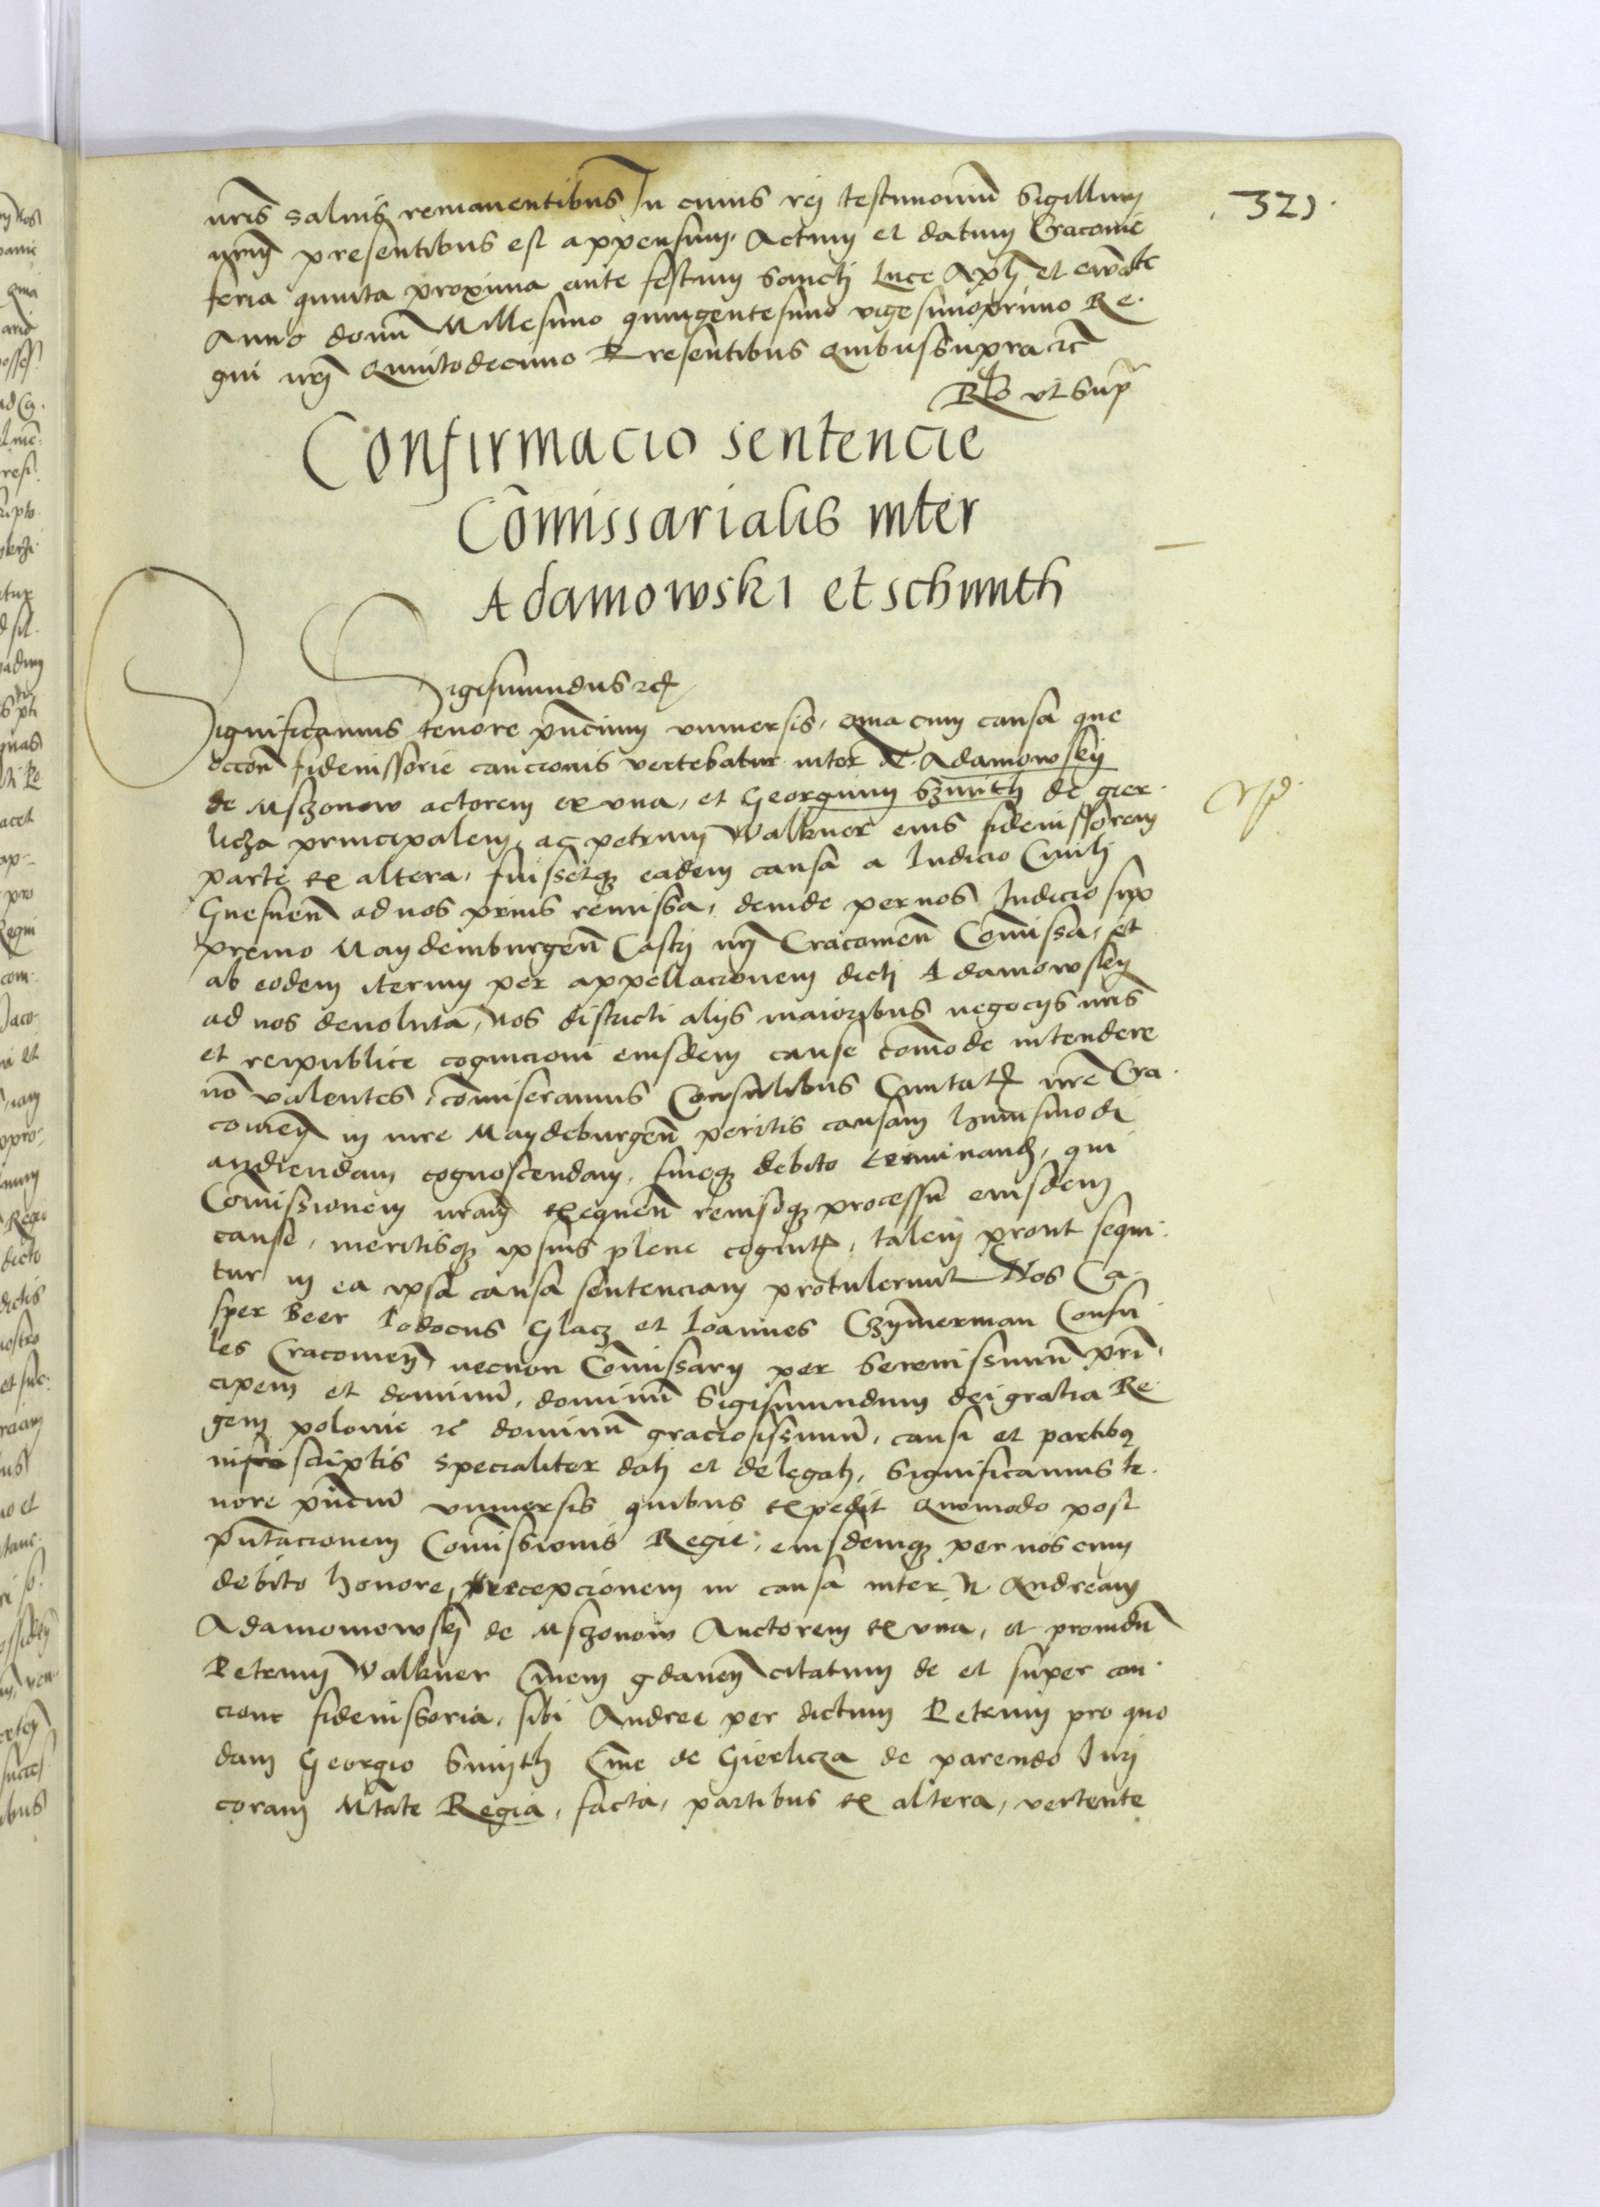 321
nris salvis remanentibus In cuius rei testimonium Sigillum
nrm presentibus est appensum. Actum et datum Cracovie
feria quinta proxima ante festum Sancti Luce Apli et evan
Anno domi Millesimo quingentesimo vigesimoprimo Re
gni nri Quintodecimo Presentibus quibus supra etc
Rlo ut supr
Confirmacio sentencie
Comissarialis inter
Adamowski et schmith
Sigismundus etc
Significamus tenore pntium universis. Quia cum causa que
occon fideiussorie caucionis vertebatur inter N. Adamowsky
de Msczonow actorem ex una, et Georgium Szmith de gier
licza principalem, ac petrum Walkner eius fideiussorem
parte ex altera, fuissetque eadem causa a Iudicio Civili
Gnesnen ad nos prius remissa, deinde per nos Iudicio sup
premo Maydemburgen Castri nri Cracovien Comissa, et
ab eodem iterum per appellacionem dicti Adamowsky
ad nos devoluta, Nos districti alijs maioribus negocijs nris
et reipublice cognicioni eiusdem cause comode intendere
no valentes, comiseramus Consulibus Civitatis nre Cra
covien in iure Maydeburgen peritis causam huiusmodi
audiendam cognoscendam, fineque debito terminand, qui
Comissionem nram exequen revisoque processu eiusdem
cause, meritisque ipsius plene cognitis, talem prout sequi
tur in ea ipsa causa sentenciam protulerunt Nos Ca
sper Beer Iodocus Glacz et Ioannes Czymerman Consu
les Cracovien, necnon Comissarij per Serenissimum prin
cipem et dominum, dominum Sigismundum dei gratia Re
gem polonie etc dominum graciosissimum, causi et partibus
infrascriptis specialiter dati et delegati, Significamus te
nore pntium universis quibus expedit Quomodo post
pntacionem Comissionis Regie, eiusdemque per nos cum
debito honore, percepcionem in causa inter N Andream
Adamomowsky de Msczonow Auctorem ex una, et providum
Petrum Walkner Civem gdanen citatum de et super cau
cione fideiussoria, sibi Andree per dictum Petrum pro quo
dam Georgio Smyth Cive de Gierlicza de parendo Iuri
coram Mtate Regia, facta, partibus ex altera, vertente